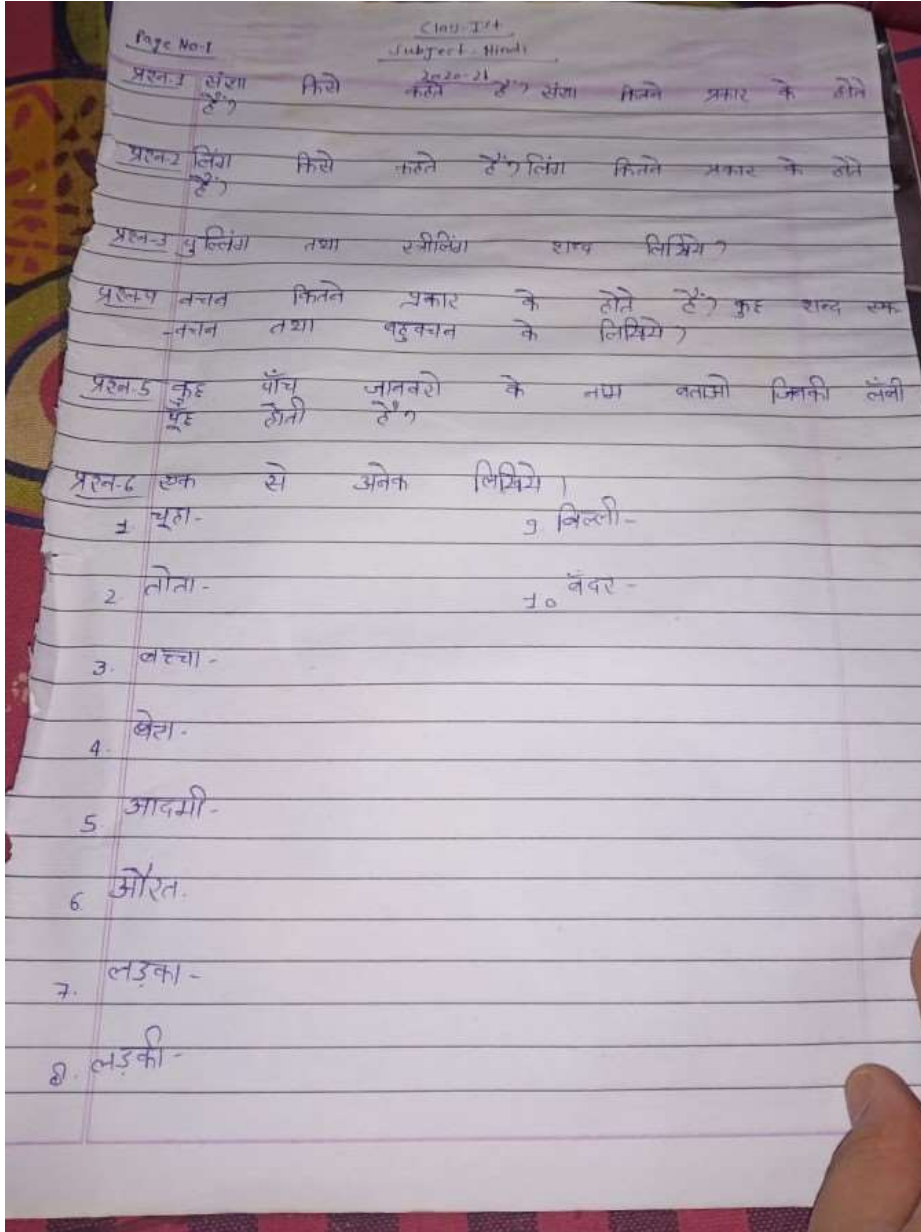 Class-Ist
Page No-1
Subject-Hindi
2020-21
प्रश्न-1 संज्ञा किसे कहते हैं? संज्ञा कितने प्रकार के होते
हैं?
प्रश्न-2 लिंग किसे कहते हैं? लिंग कितने प्रकार के होते
हैं?
प्रश्न-3 पुल्लिंग तथा स्त्रीलिंग शब्द लिखिये?
प्रश्न-4 वचन कितने प्रकार के होते हैं? कुछ शब्द एक
-वचन तथा बहुवचन के लिखिये?
प्रश्न-5 कुछ पाँच जानवरो के नाम बताओ जिनकी लंबी
पूँछ होती हैं?
प्रश्न-6 एक से अनेक लिखिये।
1 चूहा- 9. बिल्ली-
2. तोता- 10 बंदर-
3. बच्चा-
4. बेटा-
5. आदमी-
6. औरत.
7. लड़का-
8. लड़की-